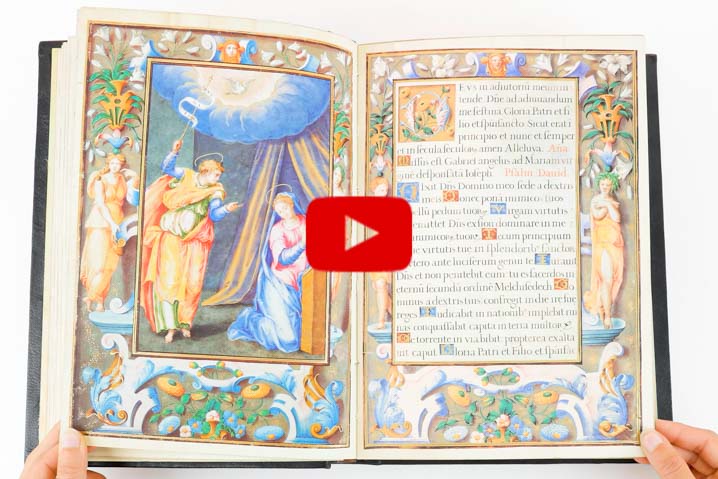 DEVS in adiutoriũ meum in
tende. Dñe ad adiuuandum
me feſtina Gloria Patri et fi
lio et ſpiſancto Sicut erat i
principio et nunc et ſemper
et in ſecula ſeculorum amen Alleluya. Ana
Miſſus eſt Gabriel angelus ad Mariam vir
gine deſponſata Ioſeph. Pſalm Dauid.
Dixit Dñs Domino meo ſede a dextris
meis Donec ponã inimicos tuos
pedum tuorum Virgam virtutis
emittet Dñs ex ſion dominare in me
inimicorum tuorum Tecum principium
in die virtutis tue in ſplendoribus ſanctorum
ex vtero ante luciferum genui te
Dñs et non penitebit eum tu es ſacerdos in
eternũ ſecundũ ordinẽ Melchiſedech
Dominus a dextris tuis confregit in die ire ſue
reges Iudicabit in nationibus implebit
nas conquaſſabit capita in terra multorum
De torrente in via bibit propterea exalta
uit caput Gloria Patri et Filio et ſpiſancto